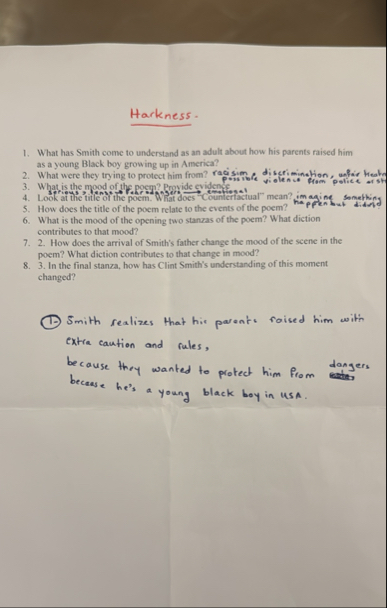 Harkness.
1. What has Smith come to understand as an adult about how his parents raised him
as a young Black boy growing up in America?
2. What were they trying to protect him from? racisim, discrimination, unfair
possible violence from police
3. What is the mood of the poem? Provide evidence
serious, tense → Fear → dangers → emotional
4. Look at the title of the poem. What does "Counterfactual" mean? imagine something
happen but didn't
5. How does the title of the poem relate to the events of the poem?
6. What is the mood of the opening two stanzas of the poem? What diction
contributes to that mood?
7. 2. How does the arrival of Smith's father change the mood of the scene in the
poem? What diction contributes to that change in mood?
8. 3. In the final stanza, how has Clint Smith's understanding of this moment
changed?
1- Smith realizes that his parents raised him with
extra caution and rules,
because they wanted to protect him from dangers
because he's a young black boy in USA.